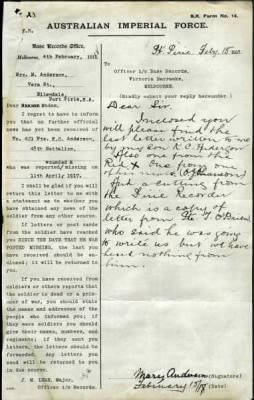 S.R. Form No. 14.
AUSTRALIAN IMPERIAL FORCE.
Base Records Office,
Melbourne, 4th February, 1918
Mrs. M. Anderson,
Vera St.,
Ellendale,
Port Pirie, S.A.
Dear Madam,
I regret to have to inform
you that no further official
news has yet been received of
No. 421 Pte. K.C. Anderson,
48th Battalion,
wounded &
who was reported/missing on
11th April 1917.
I shall be glad if you will
return this letter to me with
a statement as to whether you
have obtained any news of the
soldier from any other source.
If letters or post cards
from the soldier have reached
you SINCE THE DATE THAT HE WAS
POSTED MISSING, the last you
have received should be en-
closed; it will be returned to
you.
If you have received from
soldiers or others reports that
the soldier is dead or a prison-
er of war, you should state the
names and addresses of the
people who informed you; if
they were soldiers you should
give their names, numbers, and
regiments; if they sent you
letters, the letters should be
forwarded. Any letters you
send will be returned to you
in due course.
J. M. LEAN, Major,
Officer i/c Records.
Pt Pirie Feb. 15
To
Officer i/c Base Records,
Victoria Barracks,
MELBOURNE.
(Kindly submit your reply hereunder.)
Dear Sir.
Inclosed you
will please find the
last letter written to me
by my son K.C. Anderson
Also one from the
Red Cross from one
Just a cutting from
the Pirie Recorder
which is a copy of
letter from Pte T. O'Brien
who said he was going
to write us but we have
heard nothing from
him.
Mary Anderson (Signature)
February 15/18 (Date)